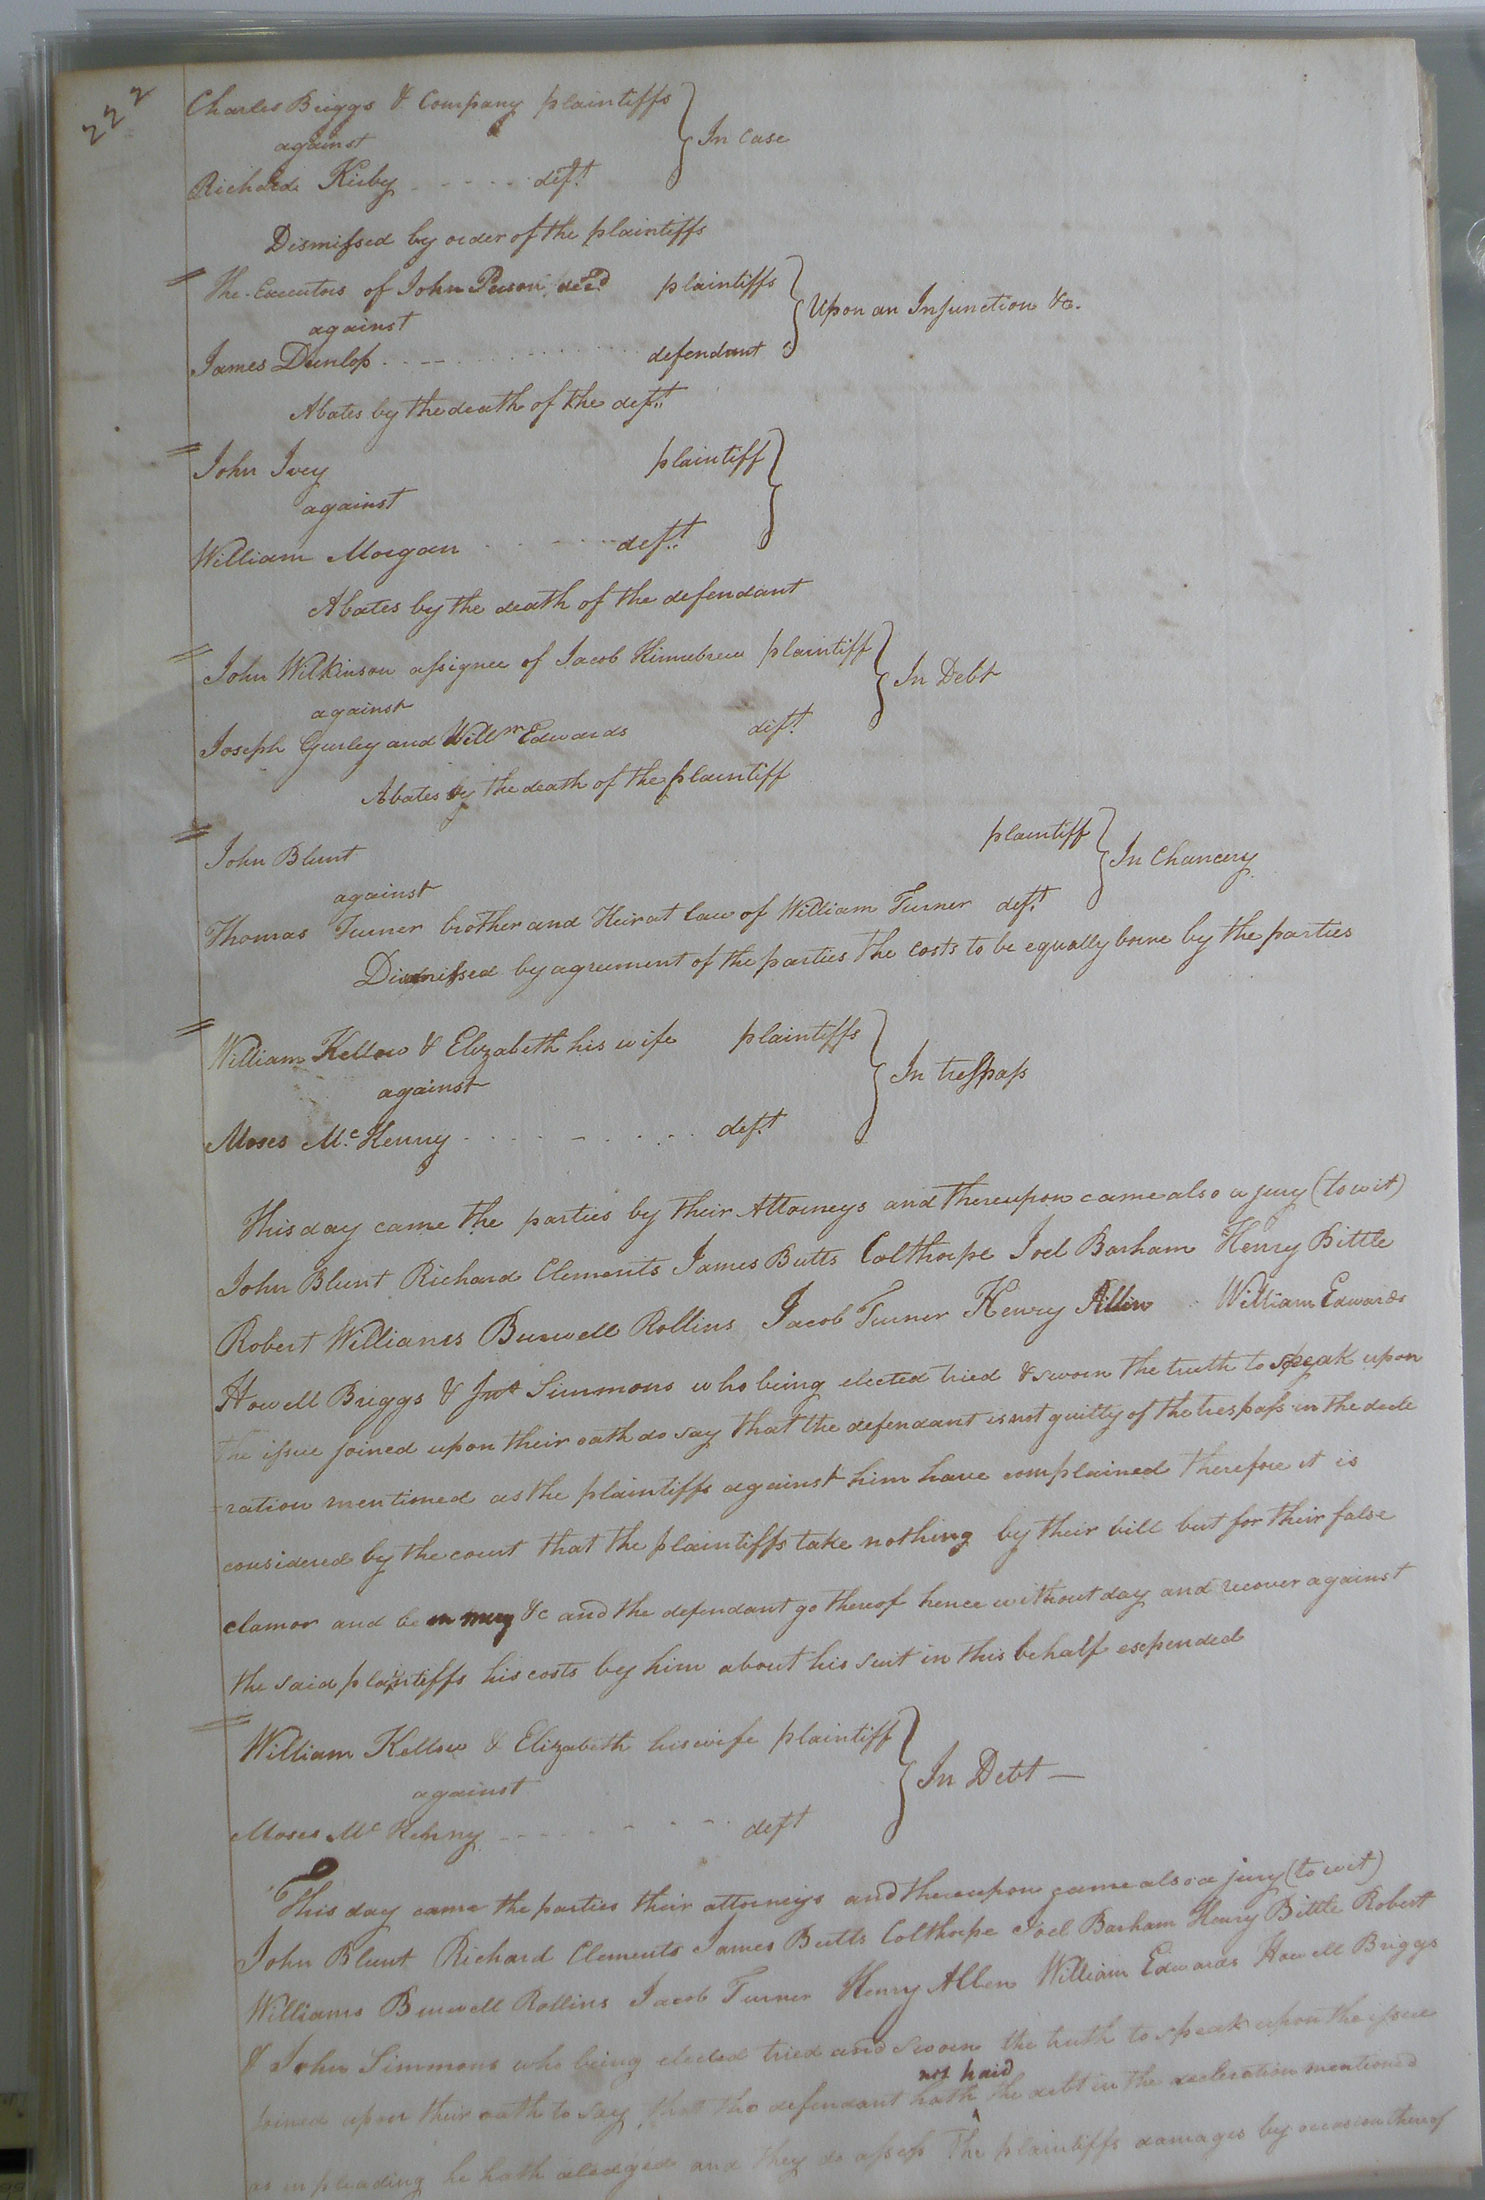 222
Charles Briggs & Company plaintiffs
against
In Case
Richard Kirby deft.
Dismissed by order of the plaintiffs
The Executors of John Person decd plaintiffs
against
Upon an Injunction &c.
James Dunlop defendant
Abates by the death of the deft.
John Ivey plaintiff
against
William Morgan deft.
Abates by the death of the defendant
John Wilkinson assignee of Jacob Kinnebrew plaintiff
against
In Debt
Joseph Gurley and Willm Edwards deft.
Abates by the death of the plaintiff
John Blunt plaintiff
against
In Chancery
Thomas Turner brother and Heir at law of William Turner deft.
Dismissed by agreement of the parties the costs to be equally borne by the parties
William Kellow & Elizabeth his wife plaintiffs
against
In tresspass
Moses Mc.Kenny deft.
This day came the parties by their Attorneys and thereupon came also a jury (to wit)
John Blunt Richard Clements James Butts Colthorpe Joel Barham Henry Bittle
Robert Williams Burwell Rollins Jacob Turner Henry Allen William Edwards
Howell Briggs & Jno Simmons who being elected tried & sworn the truth to speak upon
the issue joined upon their oath do say that the defendant is not guilty of the trespass in the decle
-ration mentioned as the plaintiffs against him have complained therefore it is
considered by the court that the plaintiffs take nothing by their bill but for their false
clamor and be in mercy &c and the defendant go thereof hence without day and recover against
the said plaintiffs his costs by him about his suit in this behalf expended
William Kellow & Elizabeth his wife plaintiff
against
In Debt —
Moses Mc Kenny deft
This day came the parties their attorneys and thereupon came also a jury (to wit)
John Blunt Richard Clements James Butts Colthorpe Joel Barham Henry Bittle Robert
Williams Burwell Rollins Jacob Turner Henry Allen William Edwards Howell Briggs
& John Simmons who being elected tried and sworn the truth to speak upon the issue
not paid
joined upon their oath to say that the defendant hath the debt in the decleration mentioned
as in pleading he hath aledged and they do assess the plaintiffs damages by occasion thereof